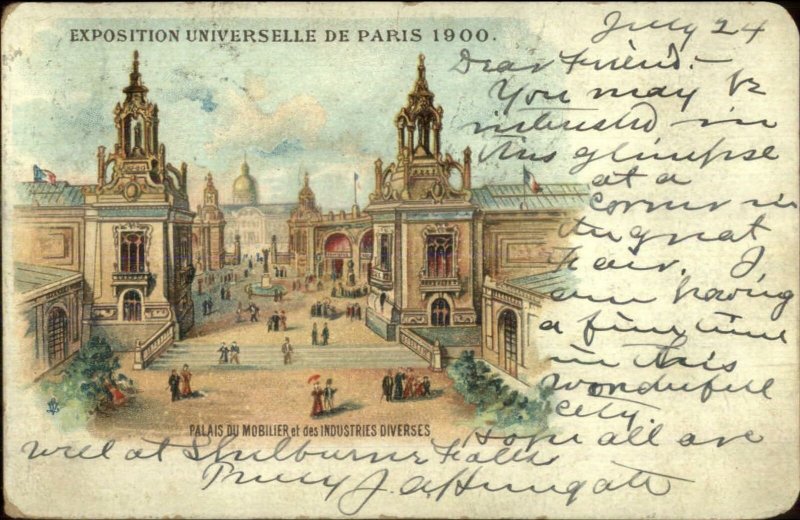 EXPOSITION UNIVERSELLE DE PARIS 1900.
July 24
Dear Friend:-
You may be
interested in
this glimpse
at a
corner in
the great
Fair. I
am having
a fine time
in this
wonderfull
city.
Hope all are
well at Shelburne Falls
PALAIS DU MOBILIER et des INDUSTRIES DIVERSES
Truly J. A.